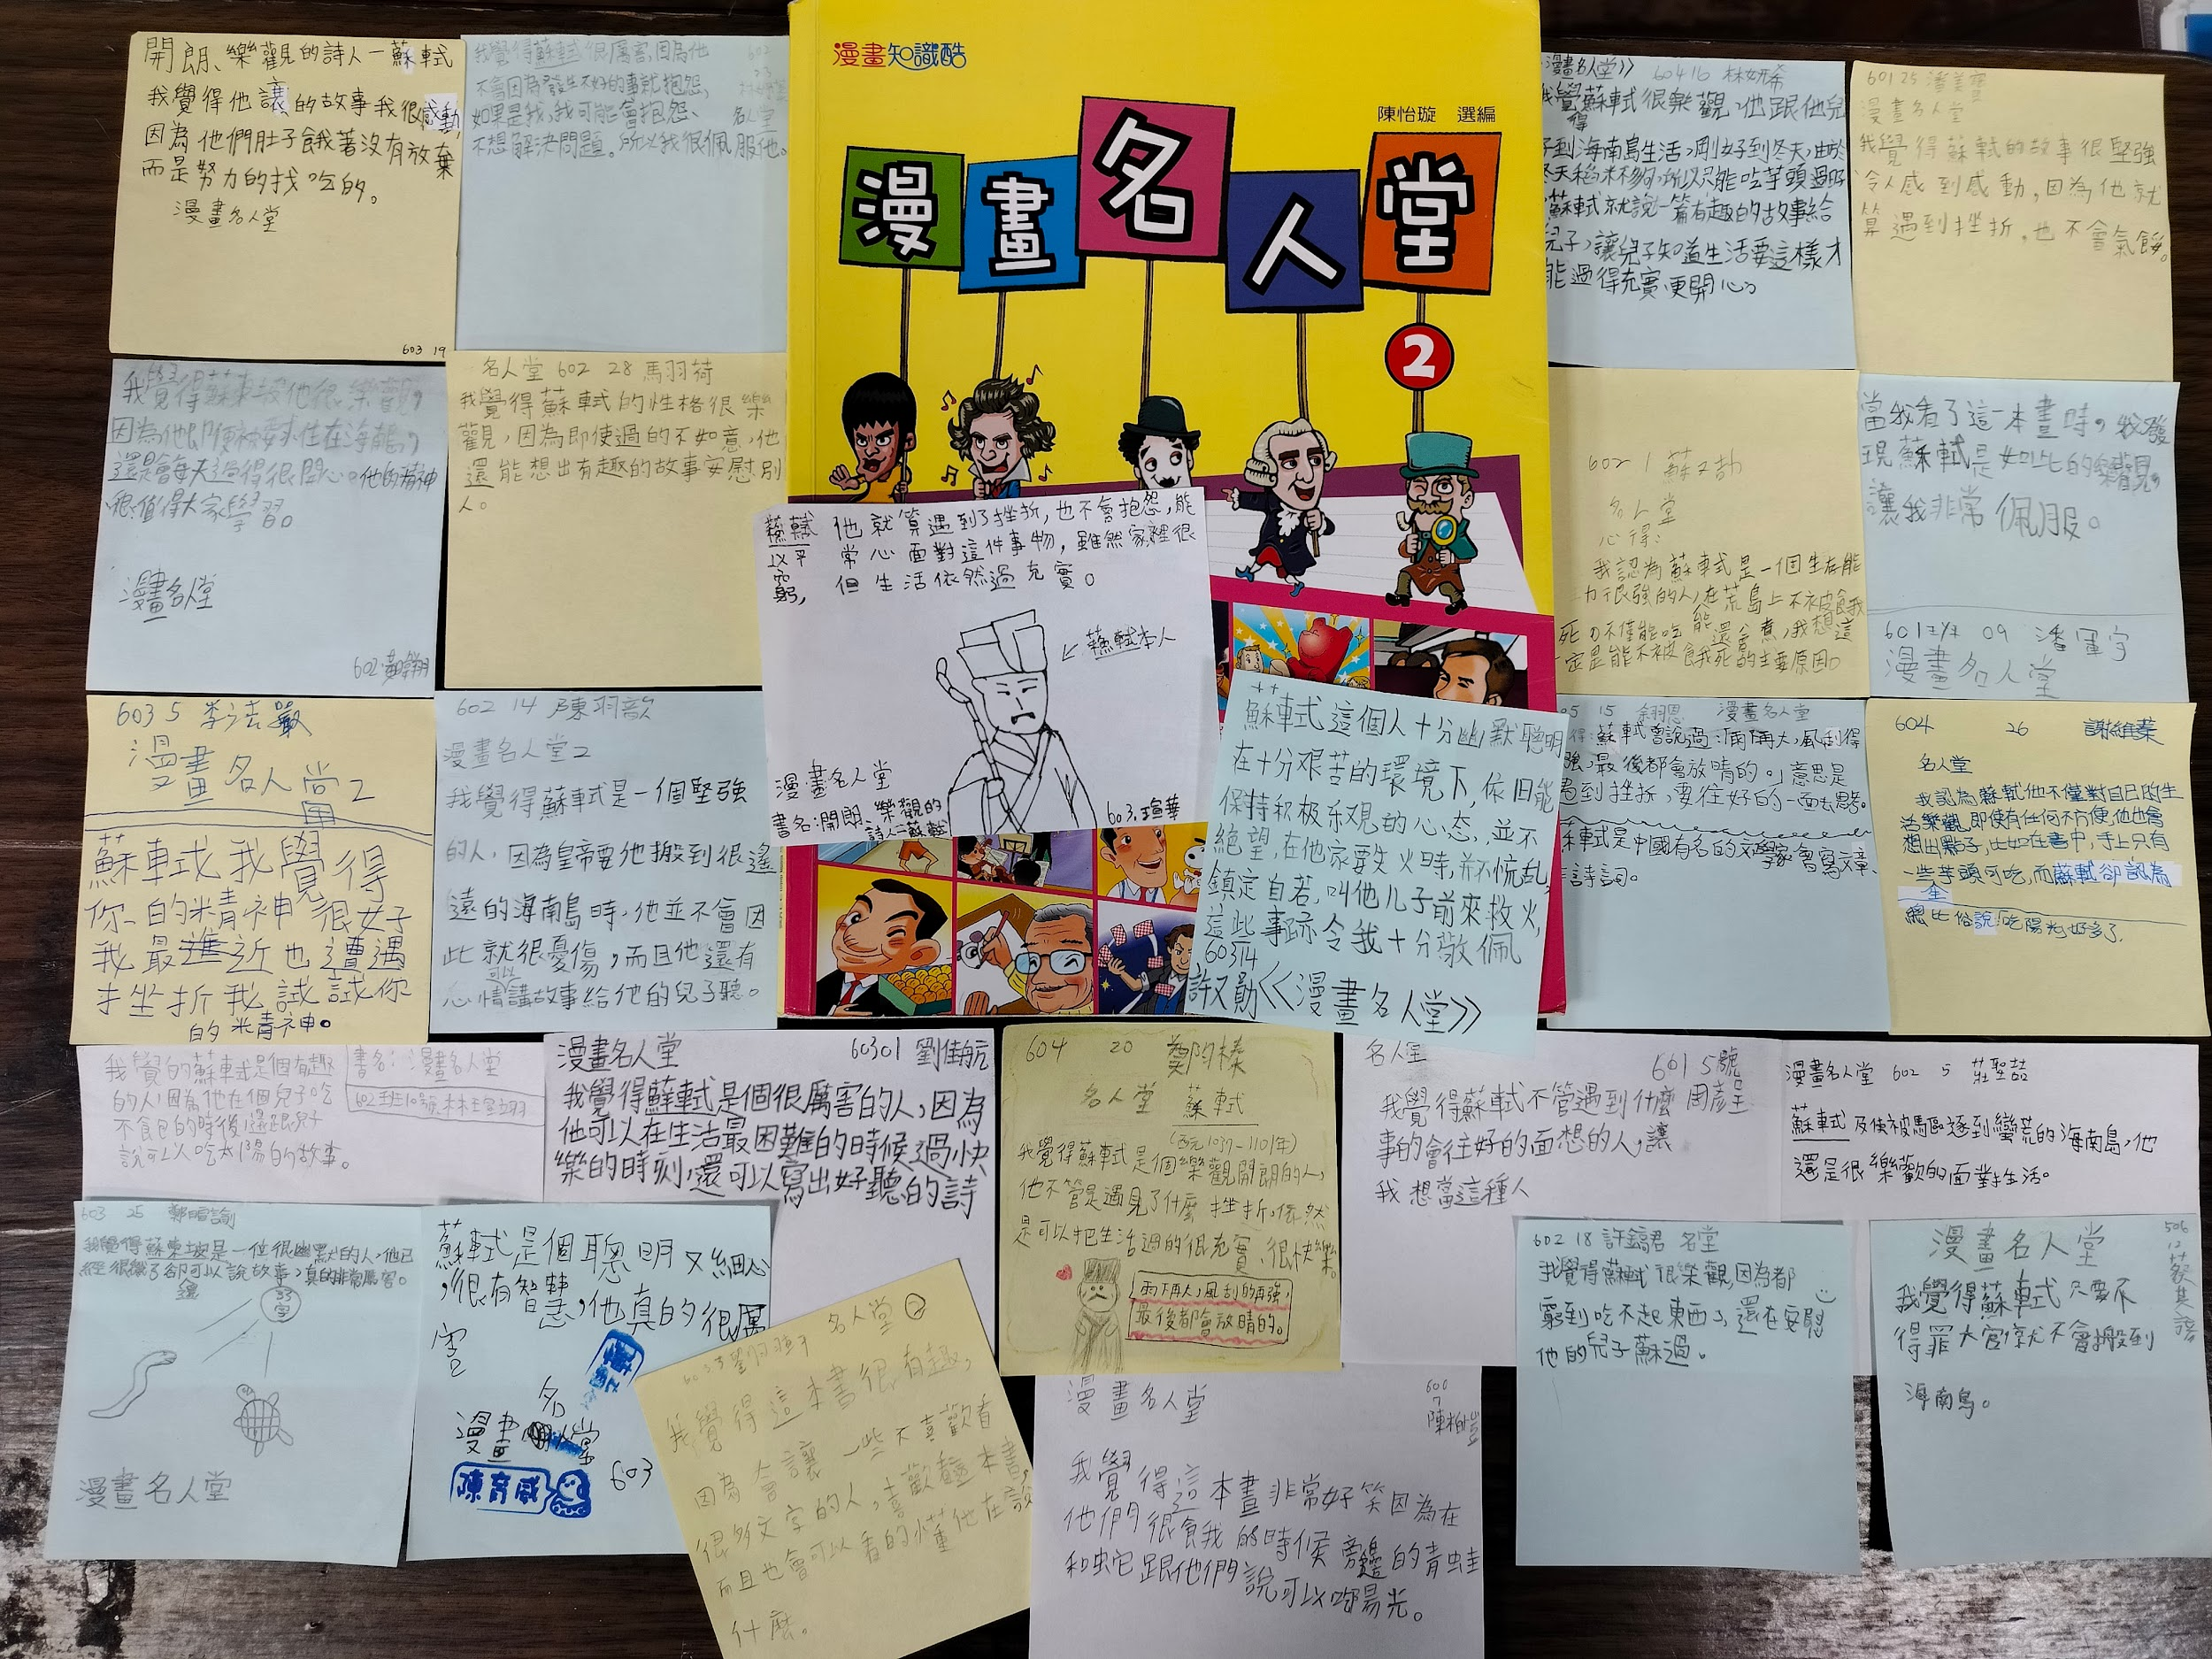 開朗、樂觀的詩人—蘇軾
我覺得他讓的故事我很感動,
因為他們肚子餓著沒有放棄
而是努力的找吃的。
漫畫名人堂
603 19
我覺得蘇軾很厲害,因為他
不會因為發生不好的事就抱怨,
如果是我,我可能會抱怨、
不想解決問題。所以我很佩服他。
名人堂
漫畫知識酷
陳怡璇 選編
漫畫名人堂
2
漫畫名人堂>>
60416 林妍希
我覺得蘇軾很樂觀,他跟他兒
子到海南島生活,剛好到冬天,由於
冬天稻米不夠,所以只能吃芋頭過好
蘇軾就說一篇有趣的故事給
兒子,讓兒子知道生活要這樣才
能過得充實、更開心。
60125 潘美
漫畫名人堂
我覺得蘇軾的故事很堅強
令人感到感動,因為他就
算遇到挫折,也不會氣餒。
我覺得蘇東坡他很樂觀,
因為他即便被要求住在海南,
還是會每天過得很開心。他的精神
很值得大家學習。
漫畫名人堂
602
名人堂 602 28 馬羽荷
我覺得蘇軾的性格很樂
觀,因為即使過的不如意,他
還能想出有趣的故事安慰別
人。
蘇軾 他就算遇到了挫折,也不會抱怨,能
以平常心面對這件事物,雖然家裡很
窮,但生活依然過充實。
蘇軾本人
漫畫名人堂
書名:開朗、樂觀的
詩人—蘇軾
603.瑄華
602 1 蘇
名人堂
心得:
我認為蘇軾是一個生存能
力很強的人,在荒島上不被餓
死,不僅能吃,能還會煮,我想這
一定是能不被餓死的主要原因。
當我看了這一本畫時,我發
現蘇軾是如此的樂觀,
讓我非常佩服。
601 09 潘軍宇
漫畫名人堂
603 5 李
漫畫名人堂2
蘇軾我覺得
你的精神很好
我最進近也遭遇
挫折我試試你
的精神。
602 14 陳羽歆
漫畫名人堂2
我覺得蘇軾是一個堅強
的人,因為皇帝要他搬到很遙
遠的海南島時,他並不會因
此就很憂傷,而且他還有
心情可以講故事給他的兒子聽。
蘇軾這個人十分幽默聰明
在十分艰苦的環境下,依旧能
保持积极乐观的心态,並不
絕望,在他家要失火時,并不慌乱,
鎮定自若,叫他儿子前來救火,
這些事跡令我十分敬佩
60314
許又勛<<漫畫名人堂>>
15 余羽恩 漫畫名人堂
蘇軾曾說過:「雨再大,風刮得
強,最後都會放晴的。」意思是
看到挫折,要往好的一面去思考。
蘇軾是中國有名的文學家會寫文章、
詩詞。
604 26
名人堂
我認為蘇軾他不僅對自己的生
活樂觀,即使有任何不方便,他也會
想出點子,比如在書中,手上只有
一些芋頭可吃,而蘇軾卻認為
總比俗說吃陽光好多了。
我覺的蘇軾是個有趣
的人,因為他在個兒子吃
不飽的時後,還跟兒子
說可以吃太陽的故事。
書名:漫畫名人堂
漫畫名人堂 60301 劉佳航
我覺得蘇軾是個很厲害的人,因為
他可以在生活最困難的時候過快
樂的時刻,還可以寫出好聽的詩
604 20 鄭昀榛
名人堂 蘇軾
(西元1037-1101年)
我覺得蘇軾是個樂觀開朗的人,
他不管是遇見了什麼挫折,依然
是可以把生活過的很充實、很快樂。
雨下再大,風刮的再強,
最後都會放晴的。
名人堂 601 5號
周彥呈
我覺得蘇軾不管遇到什麼
事的會往好的面想的人,讓
我想當這種人
漫畫名人堂 602 5 莊聖喆
蘇軾及使被驅逐到蠻荒的海南島,他
還是很樂歡的面對生活。
603 25
我覺得蘇東坡是一位很幽默的人,他已
經很餓了還卻可以說故事,真的非常厲害。
漫畫名人堂
蘇軾是個聰明又細心
,很有智慧,他真的很厲
害
漫畫名人堂
陳育威
603
名人堂②
我覺得這本書很有趣,
因為會讓一些不喜歡看
很多文字的人,喜歡這本書,
而且也會可以看的懂他在說
什麼。
漫畫名人堂
陳柏
我覺得這本畫非常好笑因為在
他們很餓的時候旁邊的青蛙
和蛇跟他們說可以喝陽光。
602 18 許鎬君 名堂
我覺得蘇軾很樂觀,因為都
窮到吃不起東西了,還在安慰
他的兒子蘇過。
506
12
漫畫名人堂
我覺得蘇軾只要不
得罪大官就不會搬到
海南島。